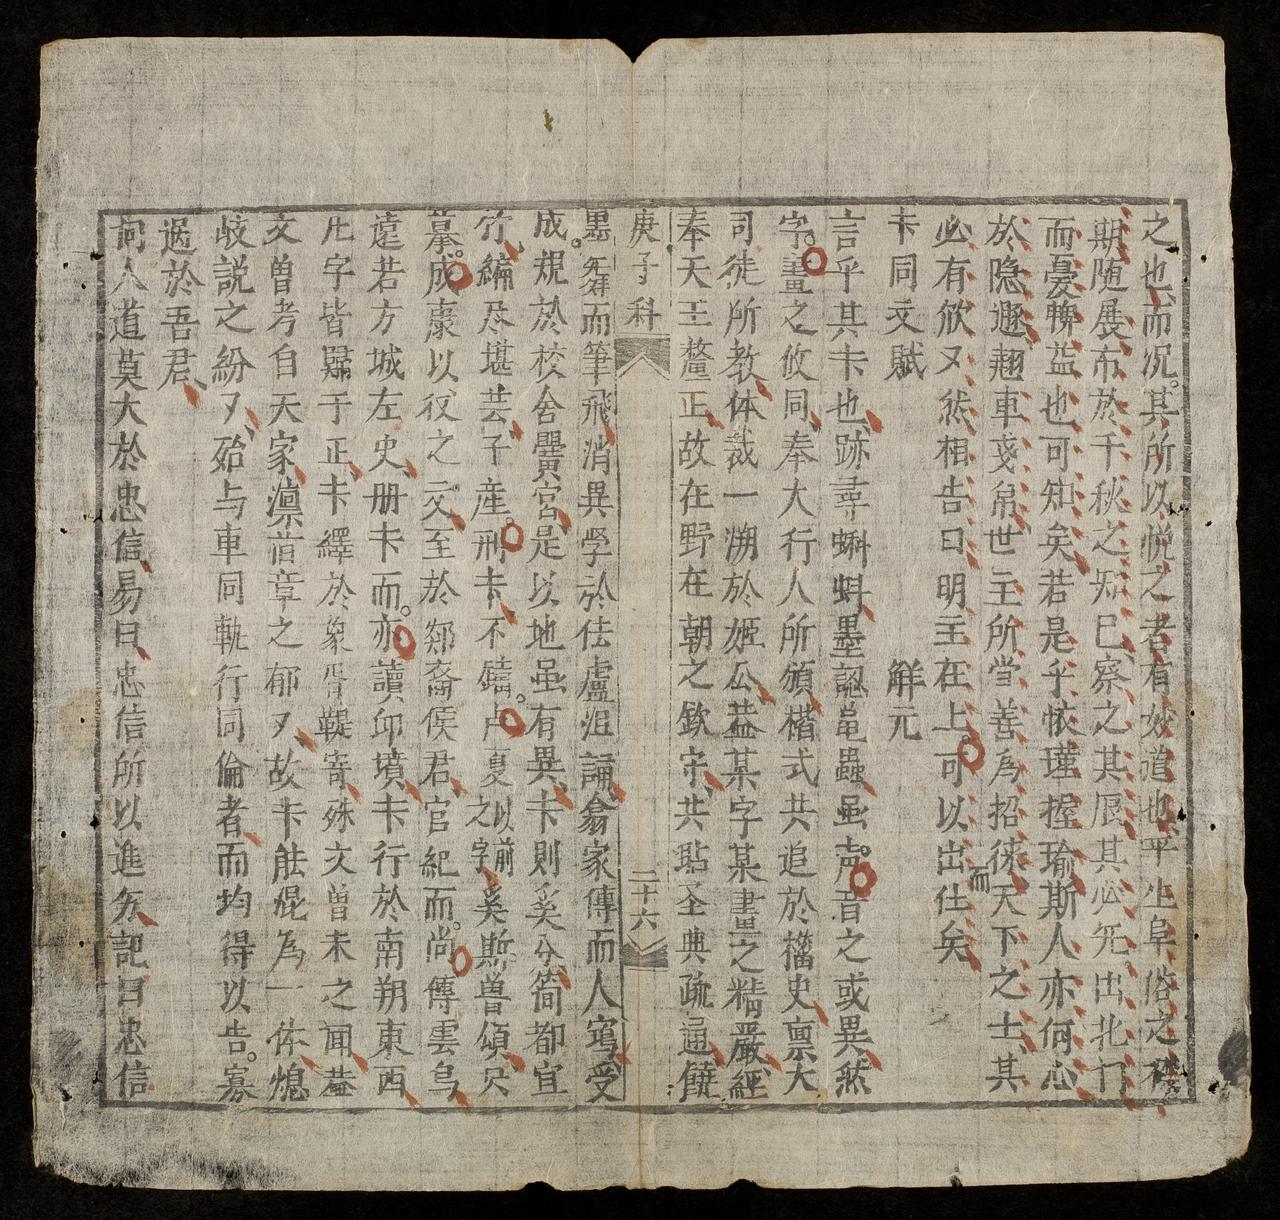 之也而况其所以悦之者有妙道也平生阜俗之
期随展布於千秋之知已察之其展其必先出北门
而憂脾益也可知矣若是乎懷瑾握瑜斯人亦何心
於隐遯翹車戔帛世主所當善為招徠天下之士其
必有攸又然相告曰明主在上可以出仕矣
而
卡同文賦 觧元
言乎其卡也跡尋蝌蚪墨認邕蟲虽声音之或異然
字畫之攸同奉大行人所頒楷式共追於籀史禀大
司徒所教体裁一溯於姬公益某字某畫之精嚴經
奉天王釐正故在野在朝之欽宗共點圣典疏通
庚子科 二十六
而筆飛消異学於佉盧沮誦翁家傳而人寫受
成規於校舍黌宮是以地虽有異卡則奚分简都宜
竹編尽堪芸子産刑卡不卢夏之字以前奚斯魯頌尺
摹成康以後之文至於郯裔侯君官紀而尚傳雲鸟
遠若方城左史册卡而亦讀邱墳卡行於南朔東西
凡字皆歸于正卡繹於象胥鞮寄殊文曽未之聞益
文曽考自天家凛旹章之郁又故卡能焜為一体
岐説之紛又殆与車同軌行同倫者而均得以告寡
過於吾君
问人道莫大於忠信易曰忠信所以進矣記曰忠信